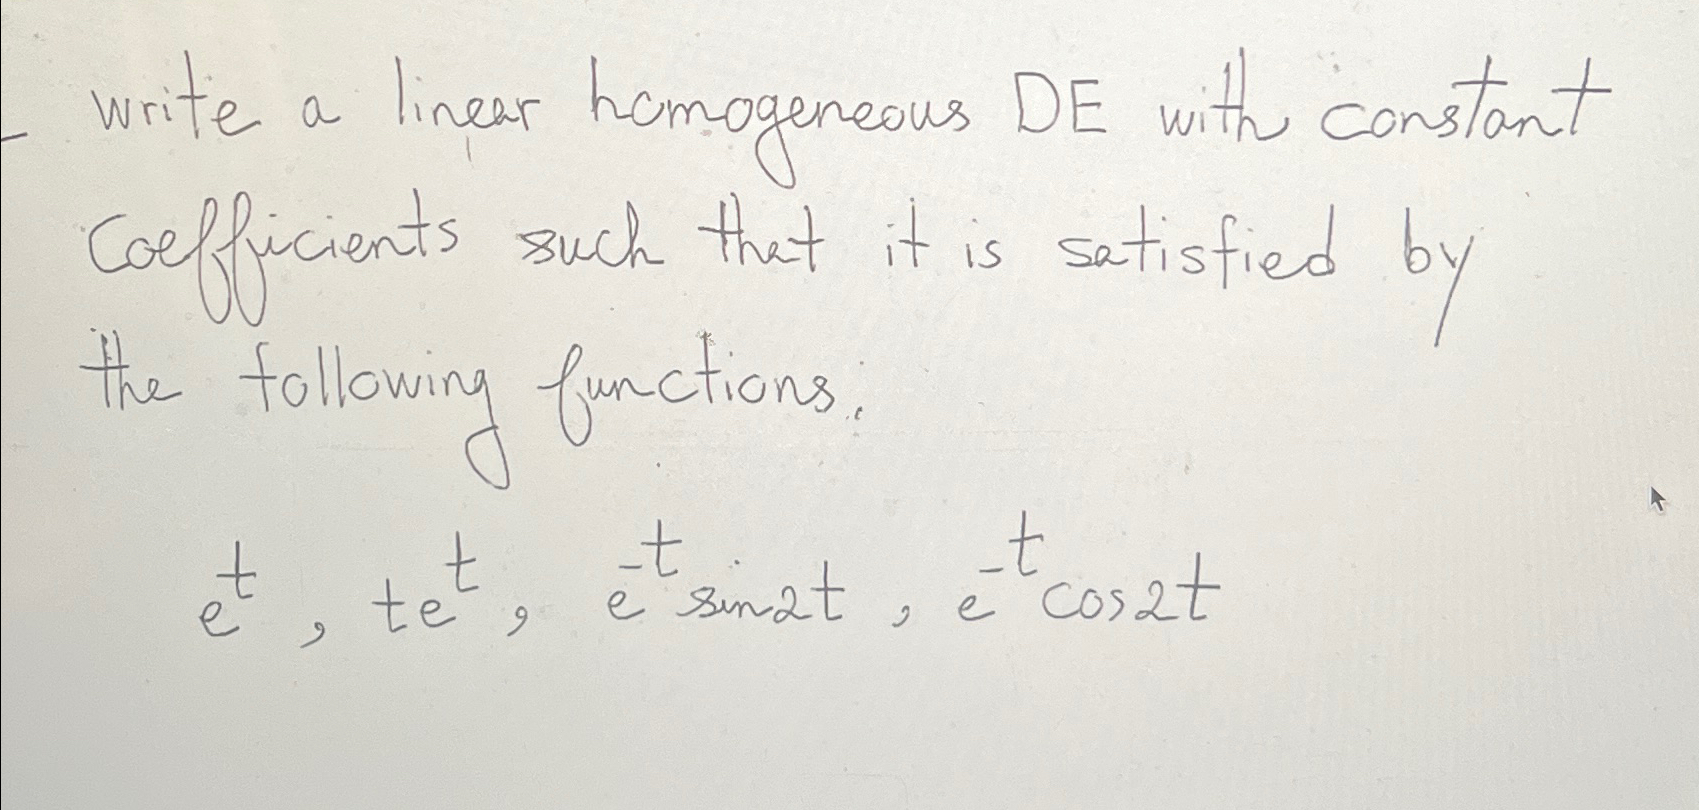 - write a linear homogeneous DE with constant
Coefficients such that it is satisfied by
the following functions:
e^t, te^t, e^-t sin2t, e^-t cos2t